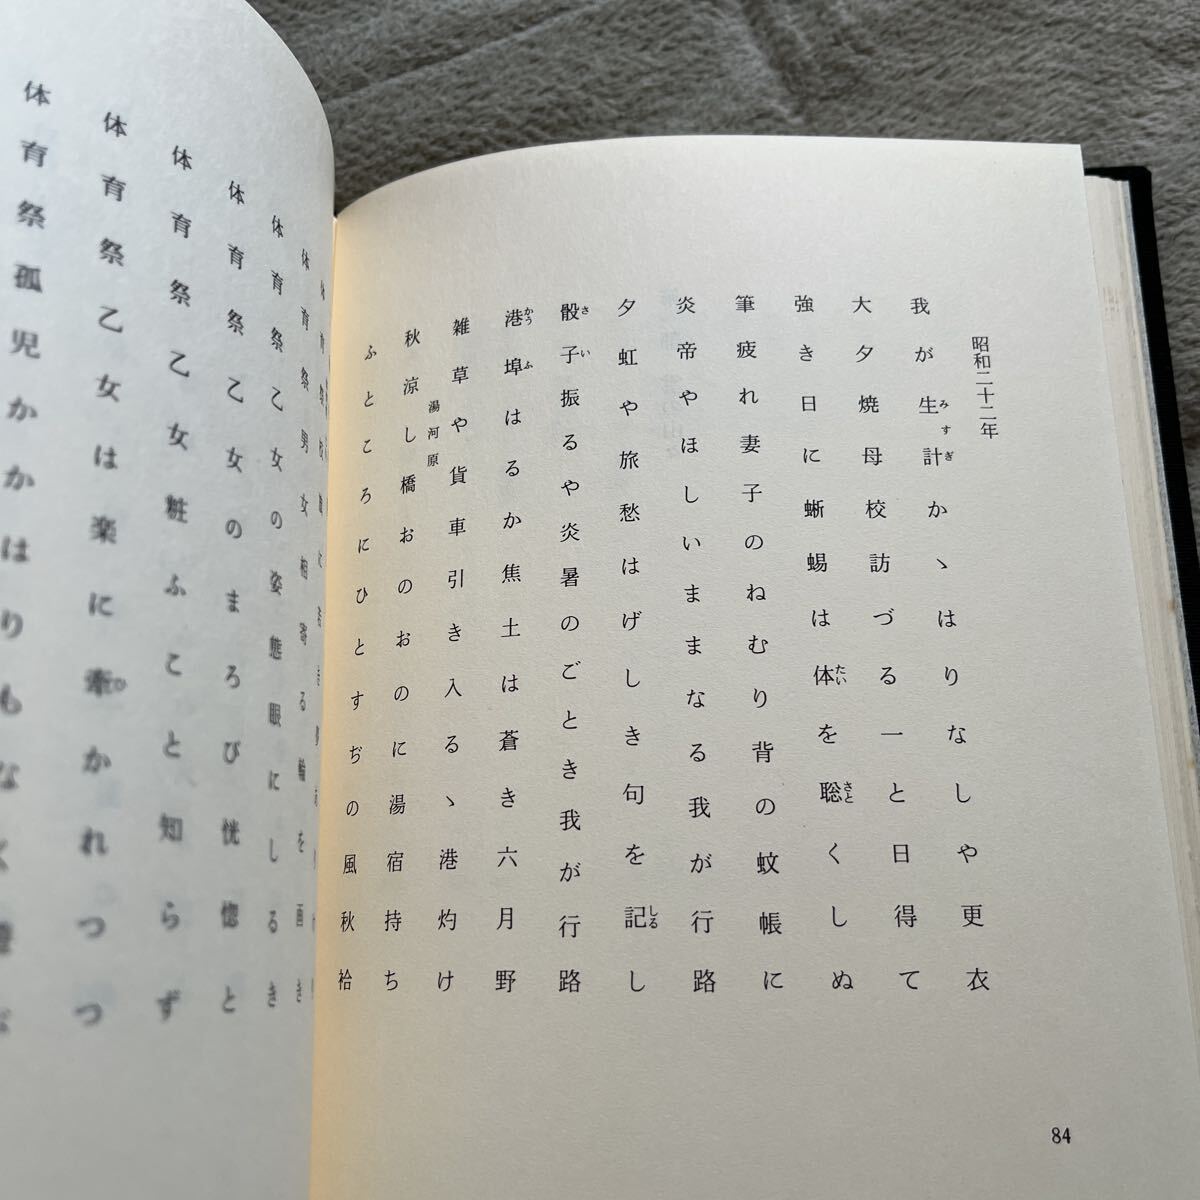 昭和二十二年
我が生計かゝはりなしや更衣
みすぎ
大夕焼母校訪づる一と日得て
強き日に蜥蜴は体を聡くしぬ
たい
さと
筆疲れ妻子のねむり背の蚊帳に
炎帝やほしいままなる我が行路
夕虹や旅愁はげしき句を記し
しる
骰子振るや炎暑のごとき我が行路
さい
港埠はるか焦土は蒼き六月野
かうふ
雑草や貨車引き入るゝ港灼け
湯河原
秋涼し橋おのおのに湯宿持ち
ふところにひとすぢの風秋袷
84
体育祭男女相寄る輪を画き
体育祭乙女の姿態眼にしるき
体育祭乙女のまろび恍惚と
体育祭乙女粧ふことと知らず
体育祭乙女は楽に牽かれつつ
体育祭孤児かかはりもなく